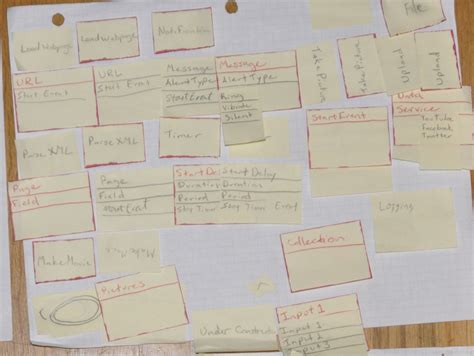 Load Webpage
Load Webpage
Notification
File
URL
Start Event
URL
Start Event
Message
Alert Type
Start Event
Message
Alert Type
Ring
Vibrate
Silent
Take Picture
Take Picture
Upload
Upload
Data
Service
YouTube
Facebook
Twitter
Start Event
Parse XML
Parse XML
Timer
Page
Field
Page
Field
Start Event
Start Delay
Duration
Period
Start Delay
Duration
Period
Event
Logging
Make Movie
Make Movie
Collection
Pictures
Under
Input 1
Input 1
Input 2